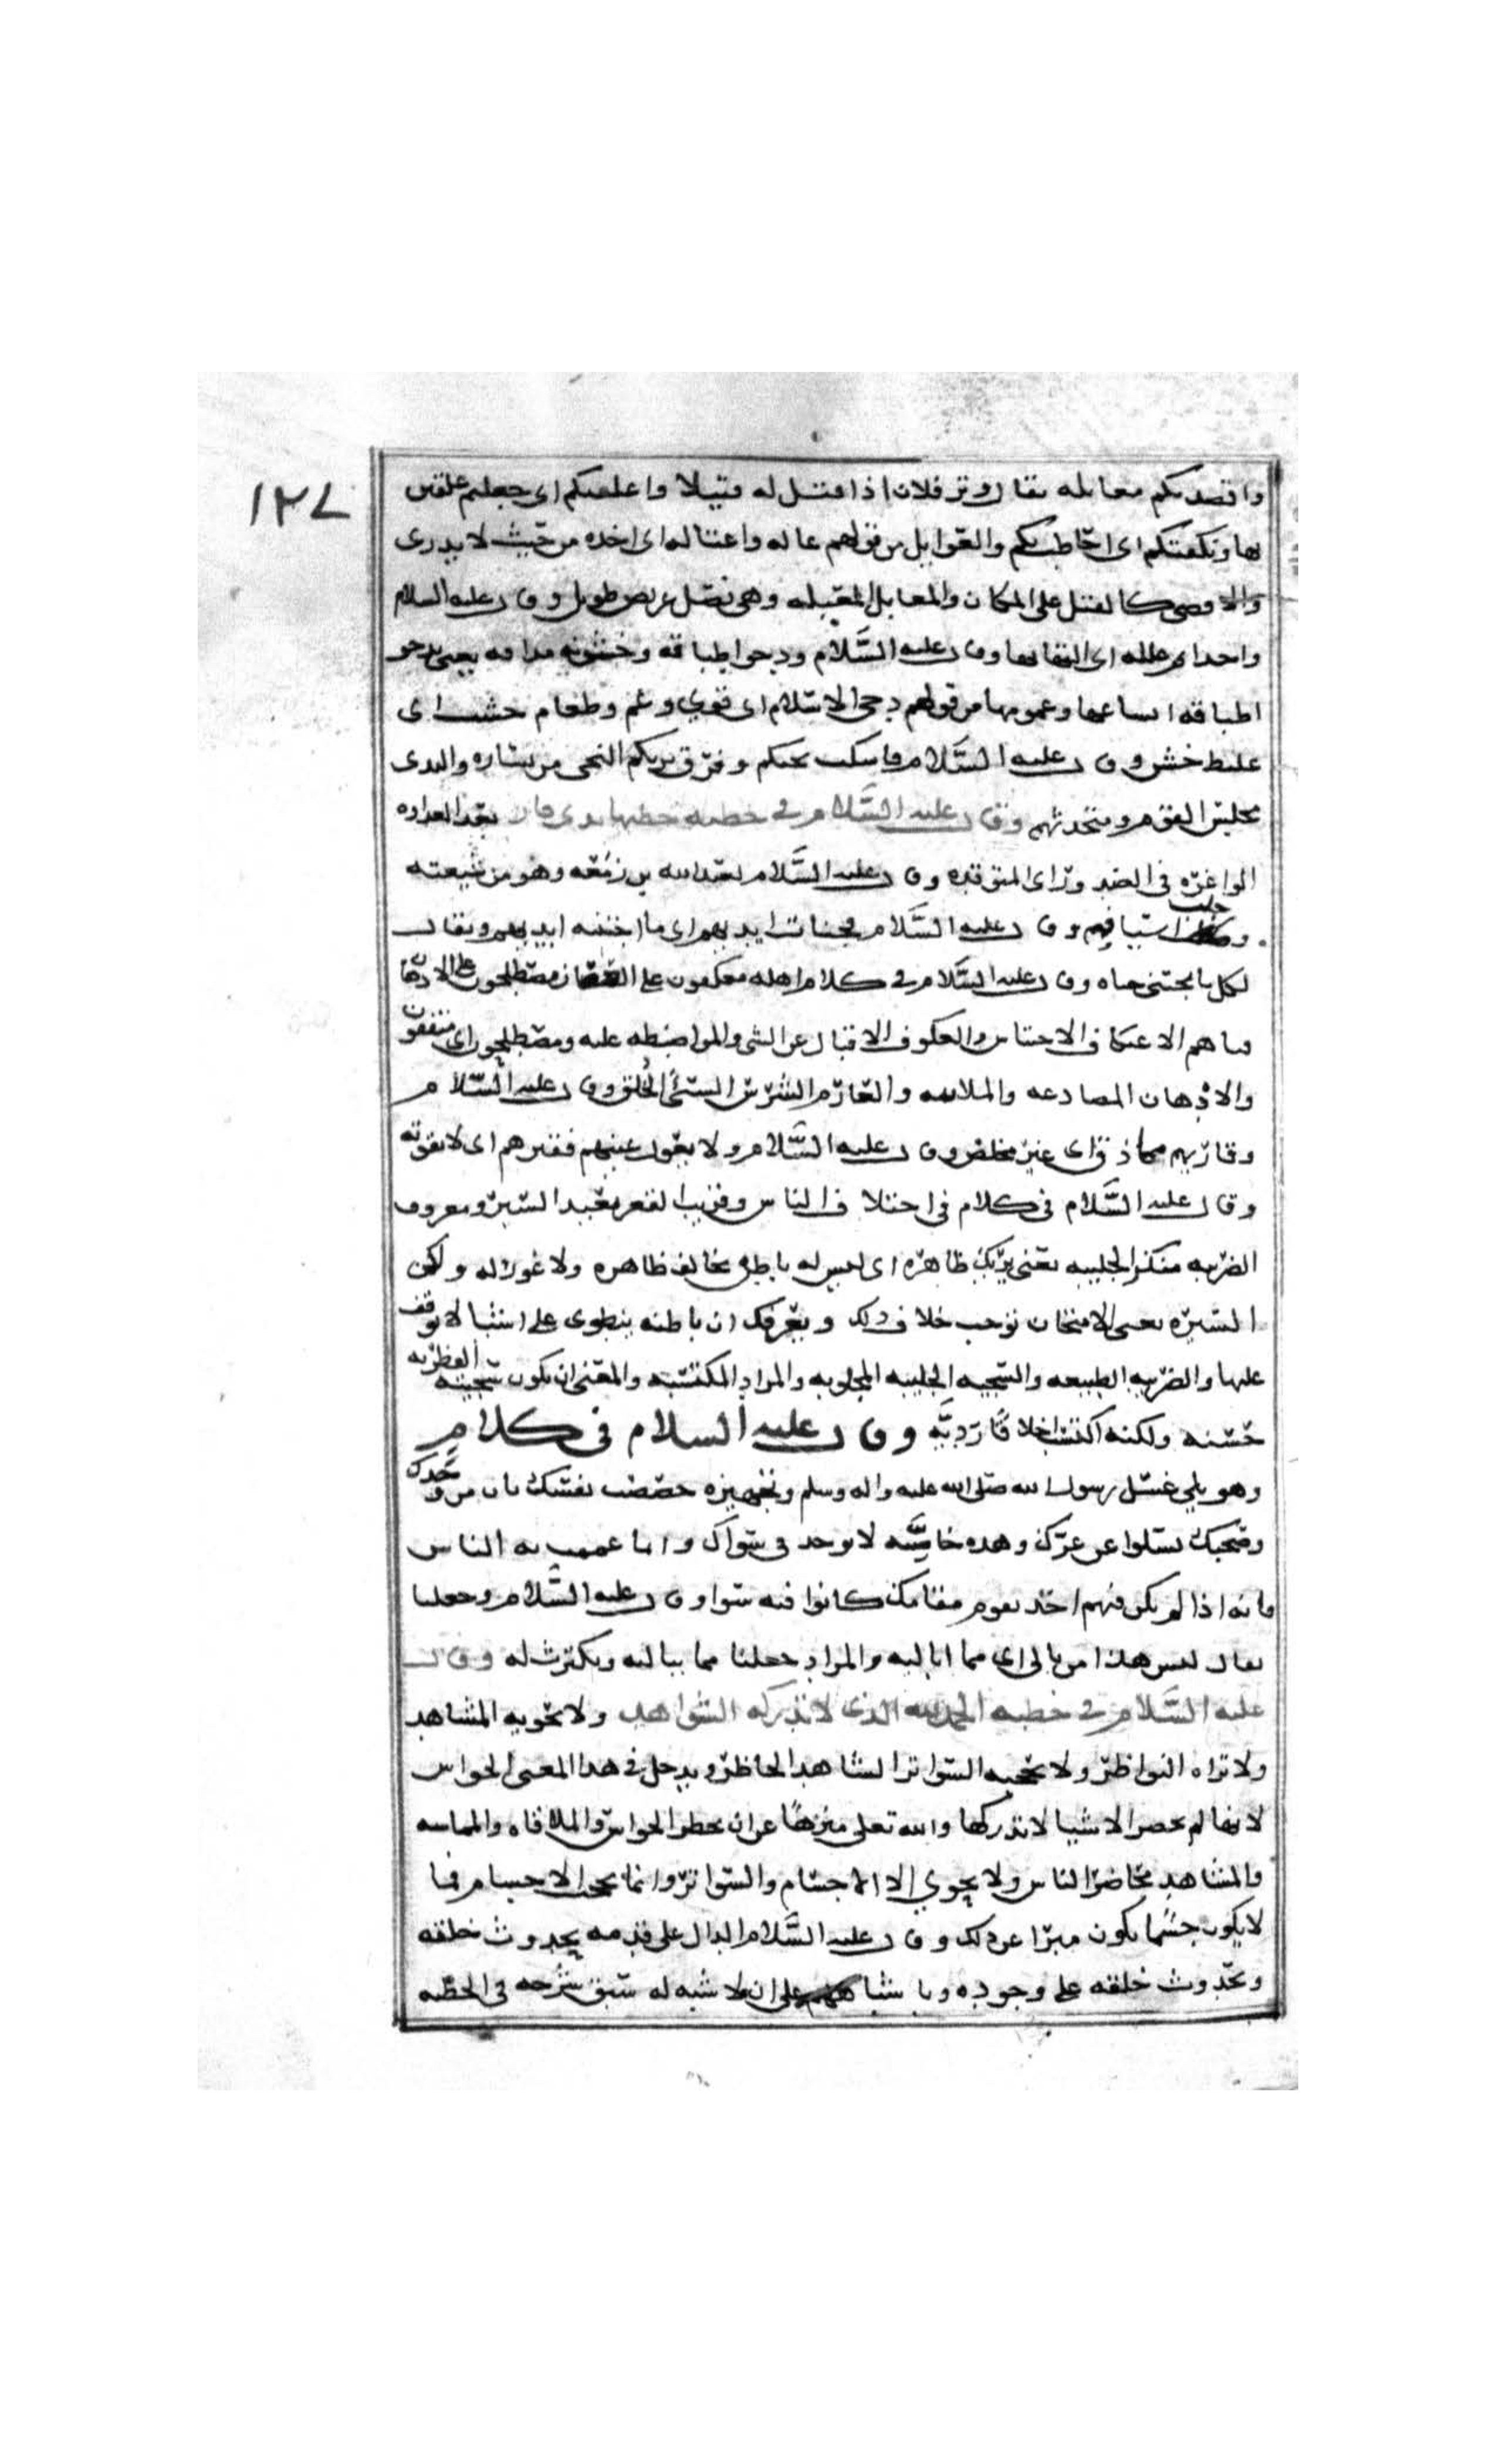 ١٢٧
واقصدتكم معابله يقال وتر فلان اذا قتل له قتيلا واعلقتكم اى جعلتم علقين
بها وتكنفتكم اى احاطت بكم والغوايل من قولهم غاله واغتاله اى اخذه من حيث لا يدرى
على المكان والمعابل المعبله وهى نصل عريض طويل وقال عليه السلام
واحتدام علله اى وقال عليه السَّلام ودجو اطباقه وخشونه مذاقه يعنى بدجو
اطباقه اتساعها وعمومها من قولهم دجى الاسلام اى قوي وعم وطعام خشب اى
غليظ خشن وقال عليه السَّلام فاسكت نجيكم وفرّق نديكم النجى من تساره والندى
مجلس القوم ومتحدثهم وقال عليه السَّلام فى خطبه خطبها بذى قار بعد العداوه
الواغره فى الصدور اى المتوقده وقال عليه السَّلام لعبد الله بن زمعه وهو من شيعته
وجلب اسيافهم وقال عليه السَّلام فجناة ايديهم اى ما اجتنته ايديهم ويقال
لكل ما يجتنى جناه وقال عليه السَّلام فى كلام اهله معكفون على العصيان مصطلحون على الادهان
الاعتكاف الاحتباس والعكوف الاقبال على الشى والمواضبطه عليه ومصطلحون اى متفقون
والادهان المصادعه والملاينه والعارم الشرس السئ الخلق وقال عليه السَّلام
وقارئهم مماذق اى غير مخلص وقال عليه السَّلام ولا يعول غنيهم فقيرهم اى لا يقوته
وقال عليه السَّلام فى كلام فى اختلاف الناس وقريب القعر بعيد السبر ومعروف
الضريبه منكر الجليبه يعنى يريك ظاهره اى ليس له باطن يخالف ظاهره ولا غور له ولكن
السبره يعنى الامتحان توجب خلاف ذلك ويعرفك ان باطنه ينطوى على اشيا لا توقف
عليها والضريبه الطبيعه والسجيه الجليبه المجلوبه والمراد المكتسبه والمعنى ان يكون سجيته الفطريه
حسنه ولكنه اكتسب اخلاقًا رديَّه وقال عليه السلام فى كلام
وهو يلي غسل رسول الله صلى الله عليه واله وسلم وتجهيزه خصصت نفسك بان من وحدك
وصحبك تسلوا عن غيرك وهذه خاصيَّه لا توجد فى سواك واما عممت به الناس
فانه اذا لم يكن فيهم احد يقوم مقامك كانوا فيه سوا وقال عليه السَّلام وجعلنا
يقال ليس هذا من بالى اى مما اباليه والمراد جعلنا مما يباليه ويكترث له وقال
عليه السَّلام فى خطبه الحمد لله الذى لا تدركه الشواهد ولا تحويه المشاهد
ولا تراه النواظر ولا تحجبه السواتر الشاهد الحاظر ويدخل فى هذا المعنى الحواس
لانها لم تحضر الاشيا لا تدركها والله تعلى منزهًا عن ان تحظره الحواس والملاقاه والمماسه
والمشاهد محاضر الناس ولا يحوي الا الاجسام والسواتر وانما تحجب الاجسام فما
لا يكون جسمًا يكون مبرا عن ذلك وقال عليه السَّلام الدال على قدمه بحدوث خلقه
وبحدوث خلقه على وجوده وباشتباههم على ان لا شبه له سبق شرحه فى الخطبه